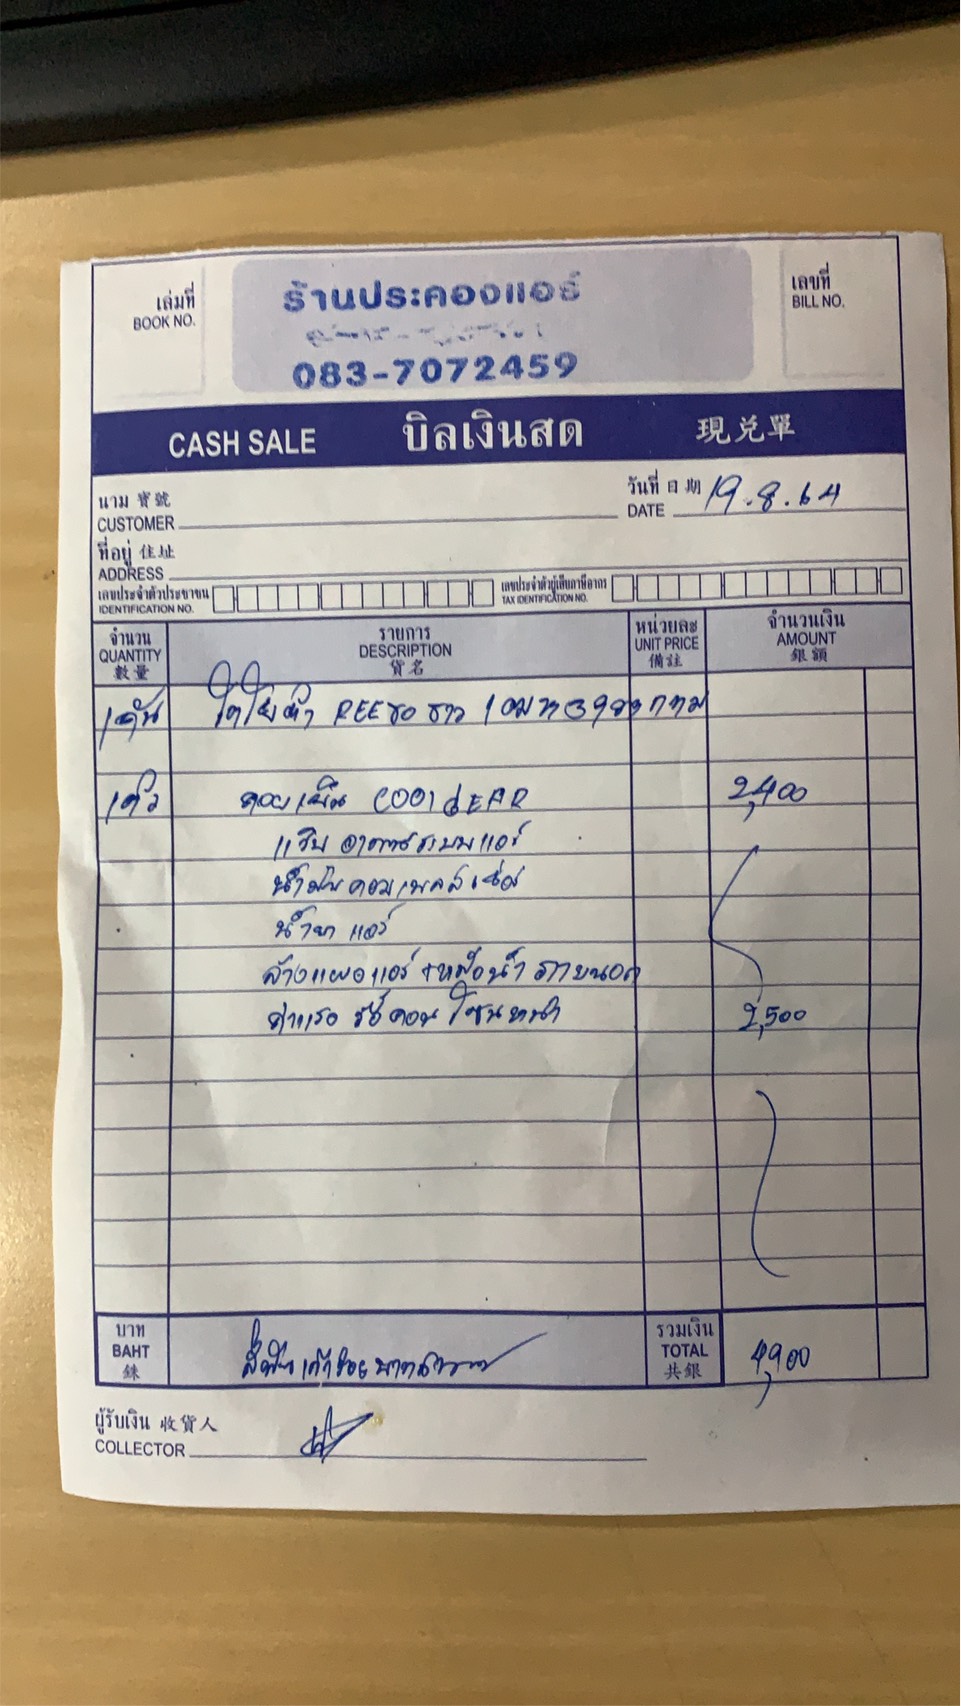 เล่มที่
BOOK NO.
ร้านประคองแอร์
083-7072459
เลขที่
BILL NO.
CASH SALE บิลเงินสด 現兑單
นาม 寶號
CUSTOMER
วันที่ 日期 19.8.64
DATE
ที่อยู่ 住址
ADDRESS
เลขประจำตัวประชาชน
IDENTIFICATION NO.
เลขประจำตัวผู้เสียภาษีอากร
TAX IDENTIFICATION NO.
จำนวน
QUANTITY
數量
รายการ
DESCRIPTION
貨名
หน่วยละ
UNIT PRICE
備註
จำนวนเงิน
AMOUNT
銀額
1คัน
1ตัว คอยเย็น COOlgEAR 2,400
แว๊ค อากาศระบบแอร์
น้ำมันคอมเพลสเซ่อ
น้ำยา แอร์
ล้างแผงแอร์ +หม้อน้ำ ภายนอก
ค่าแรง รื้อคอนโซนหน้า 2,500
บาท
BAHT
銖
สี่พันเก้าร้อยบาทถ้วน
รวมเงิน
TOTAL
共銀
4,900
ผู้รับเงิน 收貨人
COLLECTOR